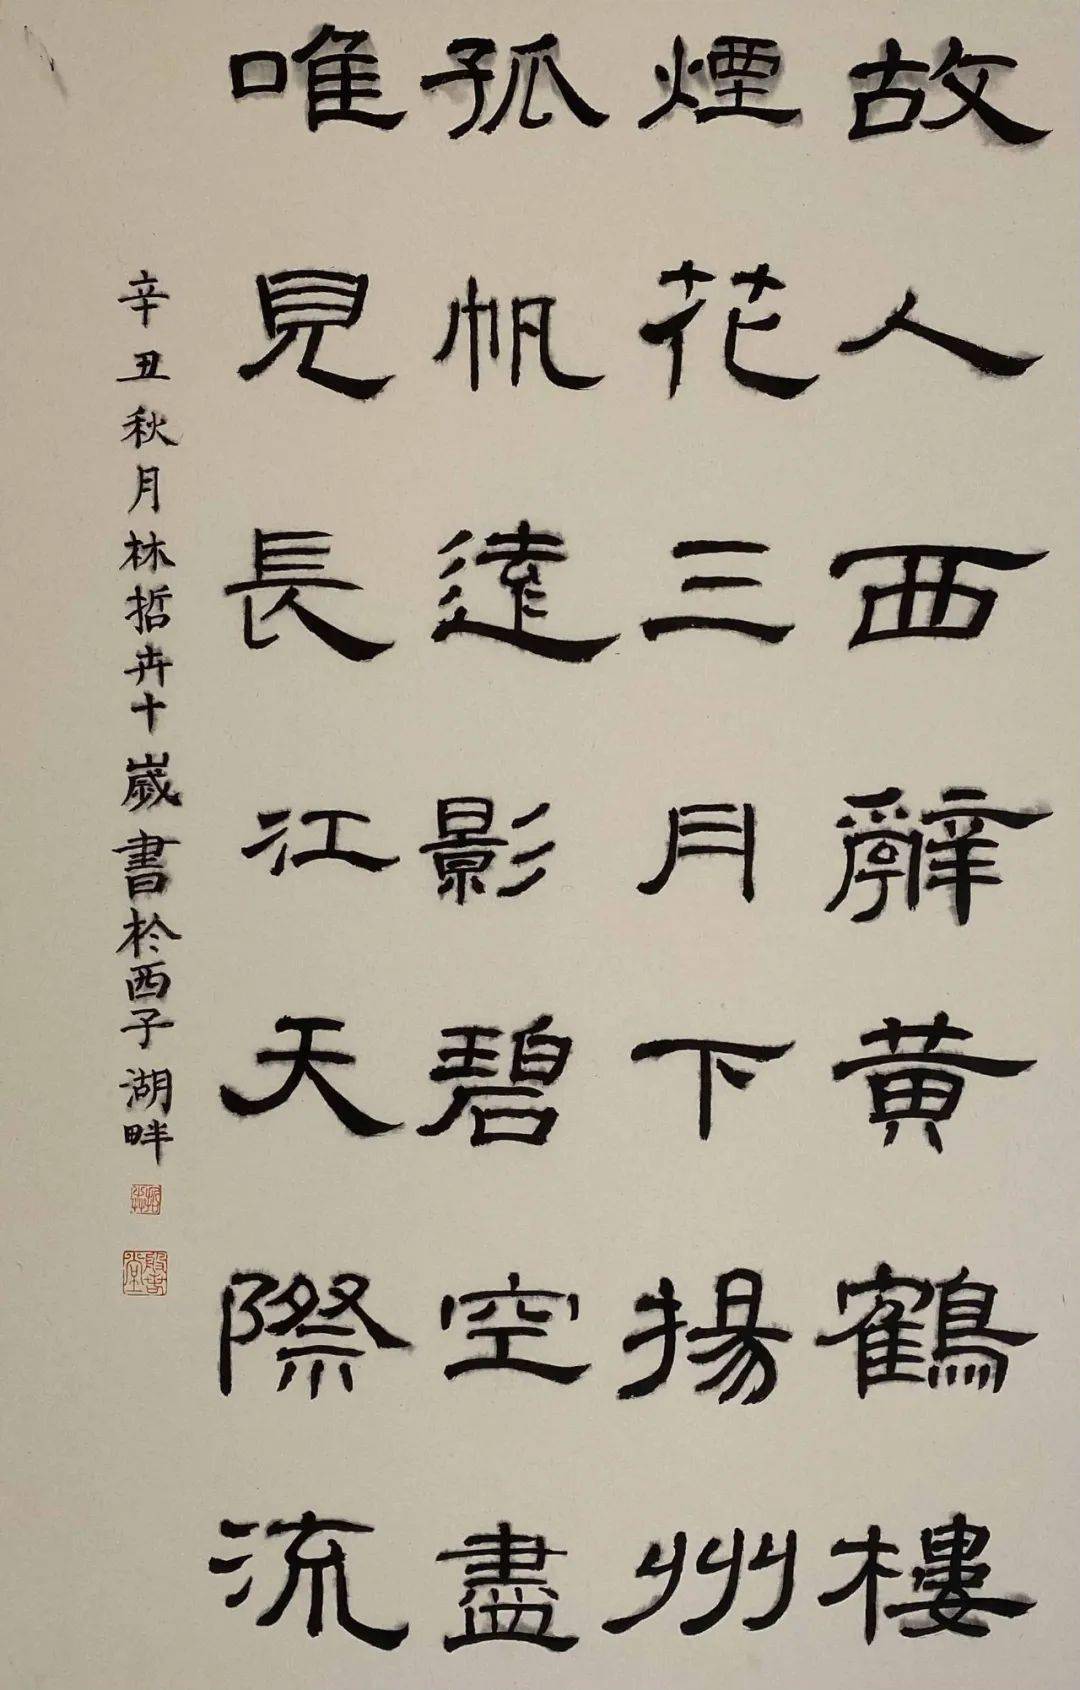 故人西辭黄鶴樓
煙花三月下揚州
孤帆遠影碧空盡
唯見長江天際流
辛丑秋月林哲卉十歲書於西子湖畔